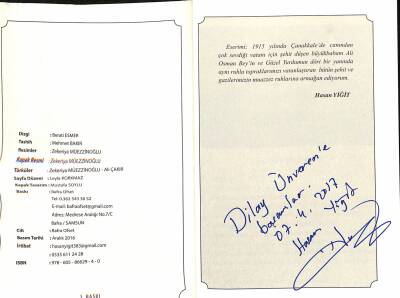 Dizgi : Berati ESMER
Tashih : Mehmet BAKIR
Resimler : Zekeriya MÜEZZİNOĞLU
Kapak Resmi : Zekeriya MÜEZZİNOĞLU
Türküler : Zekeriya MÜEZZİNOĞLU - Ali ÇAKIR
Sayfa Düzeni : Leyla KORKMAZ
Kapak Tasarım : Mustafa SOYLU
Baskı : Bafra Ofset
Tel:0.362 543 50 52
E-mail: bafraofset@gmail.com
Adres: Medrese Aralığı No:7/C
Bafra / SAMSUN
Cilt : Bafra Ofset
Basım Tarihi : Aralık 2016
İrtibat : hasanyigit383@gmail.com
: 0535 611 24 28
ISBN : 978 - 605 - 66629 - 4 - 0
2. BASKI
Eserimi; 1915 yılında Çanakkale'de canından
çok sevdiği vatanı için şehit düşen büyükbabam Ali
Osman Bey'in ve Güzel Yurdumun dört bir yanında
aynı ruhla topraklarımızı vatanlaştıran bütün şehit ve
gazilerimizin muazzez ruhlarına armağan ediyorum.
Hasan YİĞİT
Dilay Ünveren'e
başarılar.
07.4.2017
Hasan Yiğit